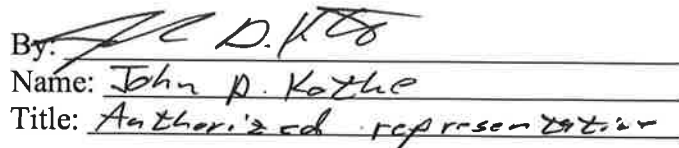 By:
Name: John D. Kothe
Title: Authorized representative